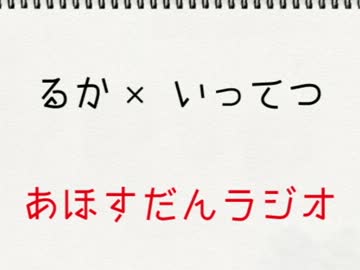 るか × いってつ
あほすだんラジオ